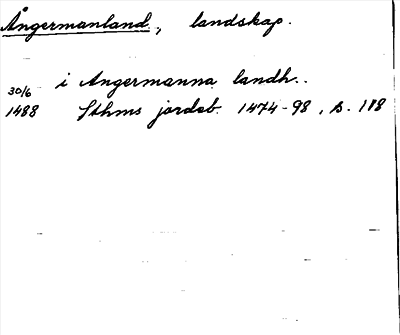 Ångermanland, landskap.
30/6 i Angermanna landh..
1488 Sthms jordab. 1474-98, s. 118